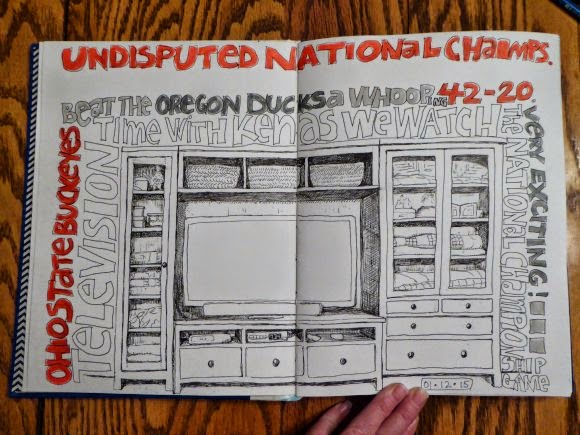 UNDISPUTED NATIONAL CHAMPS.
OHIO STATE BUCKEYES
BEAT THE OREGON DUCKS a WHOOPING 42-20
TELEVISION
TIME WITH Ken as WE WATCH
THE NATIONAL CHAMPION
SHIP
GAME
VERY EXCITING!...
01·12·15